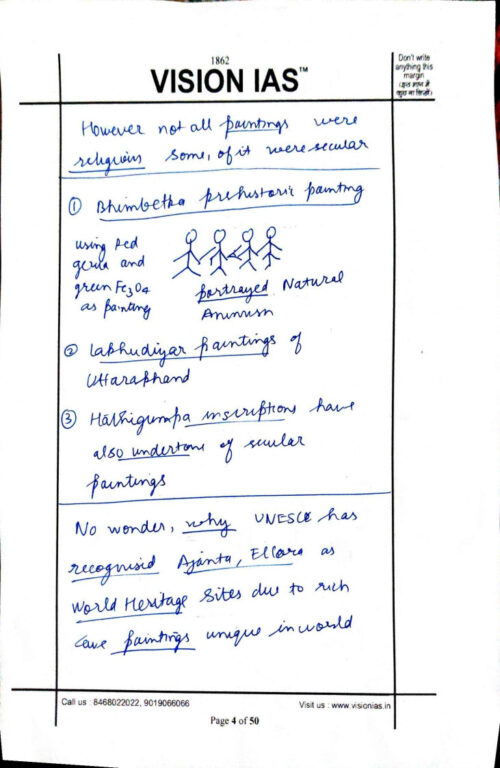 1862
VISION IAS™
Don't write
anything this
margin
(इस भाग में
कुछ ना लिखें)
However not all paintings were
religious some, of it were secular
① Bhimbetka prehistoric painting
using Red
gerua and
green Fe3O4
as painting
portrayed Natural
Animism
② Lakhudiyar paintings of
Uttarakhand
③ Hathigumpa inscriptions have
also undertone of secular
paintings
No wonder, why UNESCO has
recognisid Ajanta, Ellora as
World Heritage Sites due to rich
Cave paintings unique in world
Call us : 8468022022, 9019066066
Visit us : www.visionias.in
Page 4 of 50